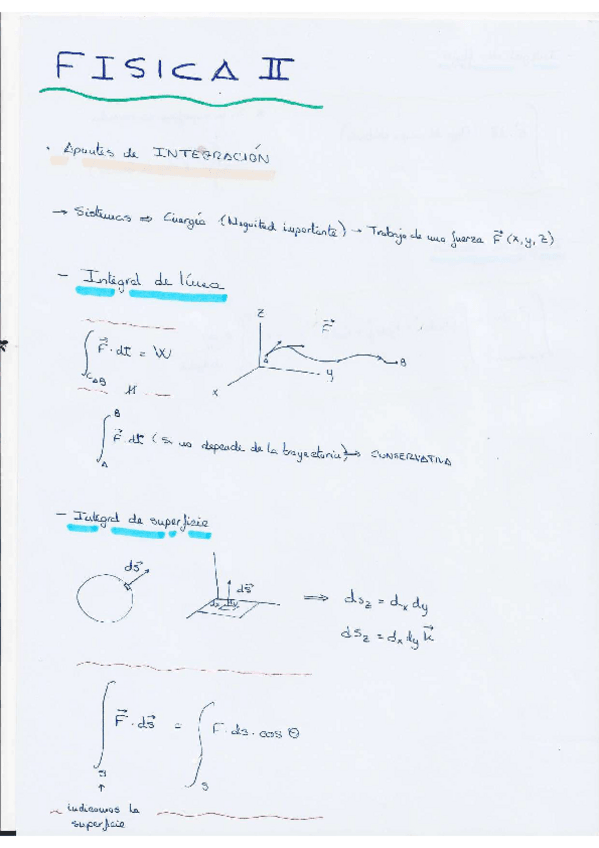 FISICA II
· Apuntes de INTEGRACIÓN
→ Sistemas ⇒ Energía (Magnitud importante) → Trabajo de una fuerza F⃗ (x, y, z)
- Integral de línea
∫ F⃗ · dl⃗ = W
C AB
z
F⃗
A
B
y
x
∫ᴬᴮ F⃗ · dl⃗ (si no depende de la trayectoria) → CONSERVATIVA
- Integral de superficie
ds⃗
ds⃗
⇒ ds_z = dx dy
ds⃗_z = dx dy k⃗
∫ F⃗ · ds⃗ = ∫ F · ds · cos θ
S
S
↑
indicamos la
superficie